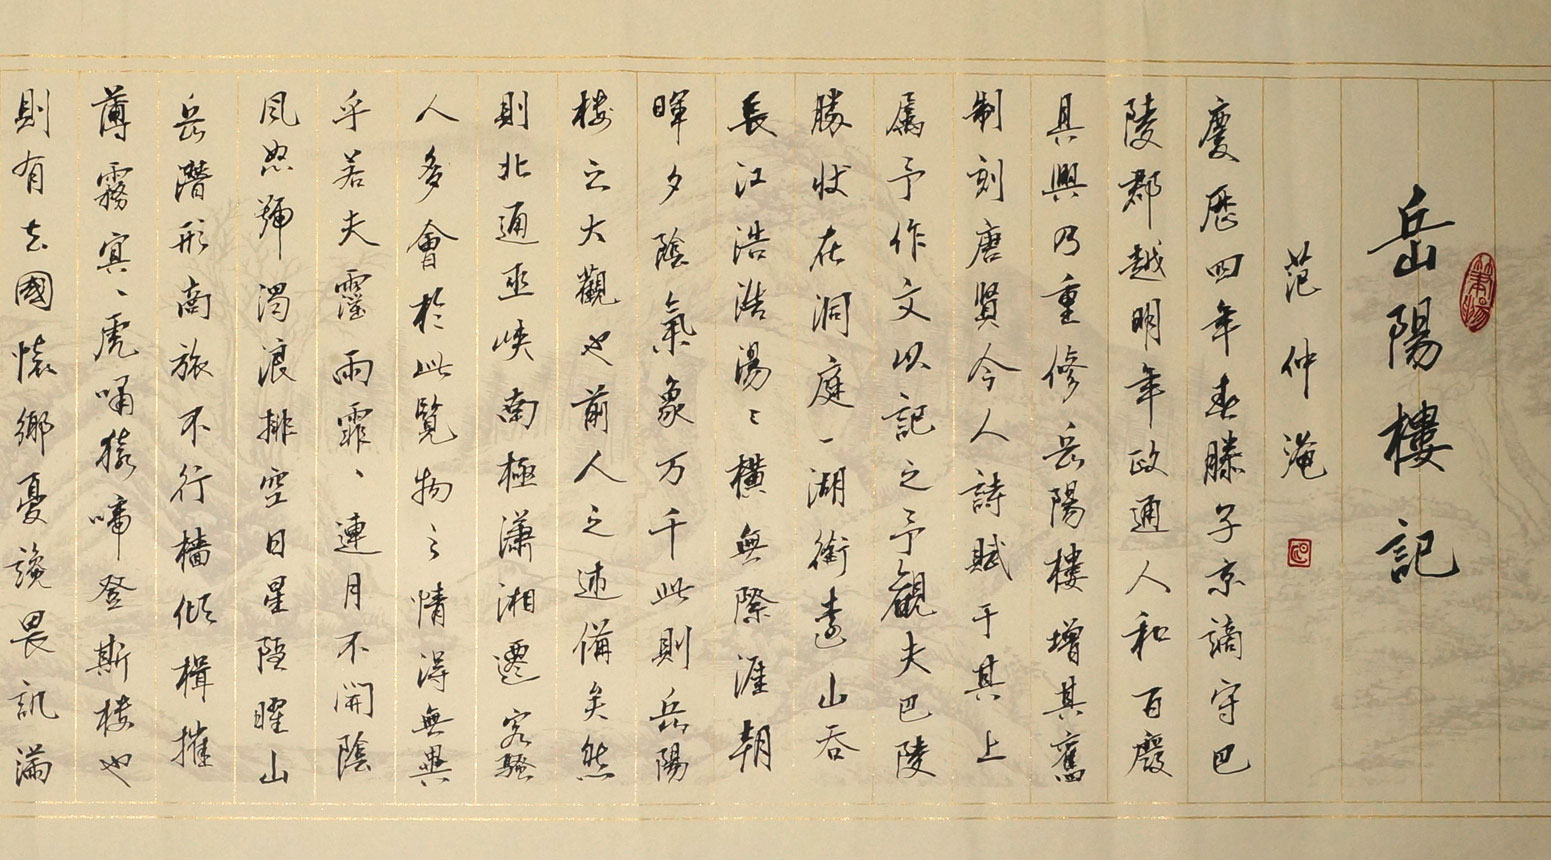 岳陽樓記
范仲淹
慶歷四年春滕子京謫守巴
陵郡越明年政通人和百廢
具興乃重修岳陽樓增其舊
制刻唐賢今人詩賦于其上
屬予作文以記之予觀夫巴陵
勝狀在洞庭一湖銜遠山吞
長江浩浩湯〻橫無際涯朝
暉夕陰氣象万千此則岳陽
樓之大觀也前人之述備矣然
則北通巫峽南極瀟湘遷客騷
人多會於此覽物之情得無異
乎若夫霪雨霏〻連月不開陰
風怒號濁浪排空日星隱曜山
岳潛形商旅不行檣傾楫摧
薄霧冥〻虎嘯猿啼登斯樓也
則有去國懷鄉憂讒畏譏滿